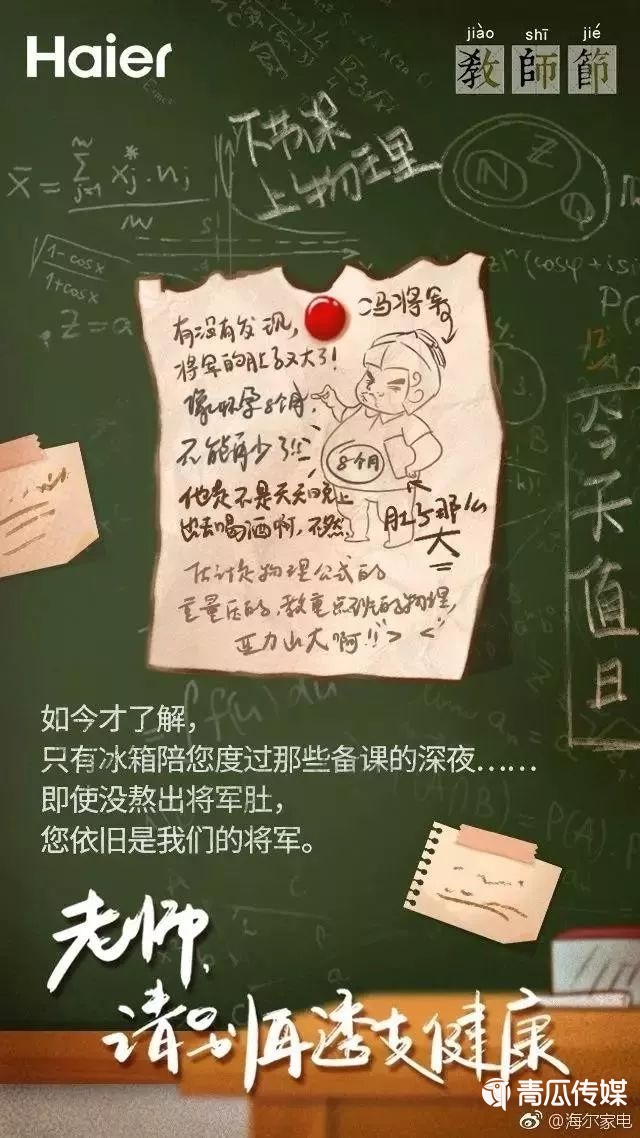 Haier
jiào shī jié
教師節
下节课
上物王里
X̄ = Σ xj*·nj
j=1
N
Z
Q
1-cosx
1+cosx
Z=a
(cosφ+isi
P(
今天值日
冯将军
有没有发现,
将军的肚子又大了!
像怀孕8个月,
不能再少了!!
8个月
他是不是天天晚上
出去喝酒啊,不然
肚子那么
大
估计是物理公式的
重量压的,教重点班的物理,
亚力山大啊!!><
f(u)du
如今才了解,
只有冰箱陪您度过那些备课的深夜……
即使没熬出将军肚,
您依旧是我们的将军。
P(A∩B)=P(A).
老师,
请别再透支健康
青瓜传媒
@海尔家电